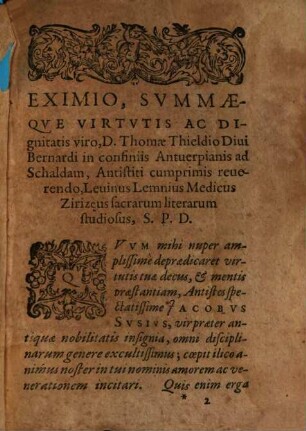 EXIMIO, SVMMÆ-
QVE VIRTVTIS AC DI-
gnitatis viro, D. Thomæ Thieldio Diui
Bernardi in confiniis Antuerpianis ad
Schaldam, Antistiti cumprimis reue-
rendo, Leuinus Lemnius Medicus
Zirizeus sacrarum literarum
studiosus, S. P. D.
QVVM mihi nuper am-
plissime deprædicaret vir-
tutis tuæ decus, & mentis
præstantiam, Antistes spe-
ctatissime IACOBVS
SVSIVS, vir præter an-
tiquæ nobilitatis insignia, omni discipli-
narum genere excultissimus; cœpit ilico a-
nimus noster in tui nominis amorem ac ve-
nerationem incitari. Quis enim erga
* 2